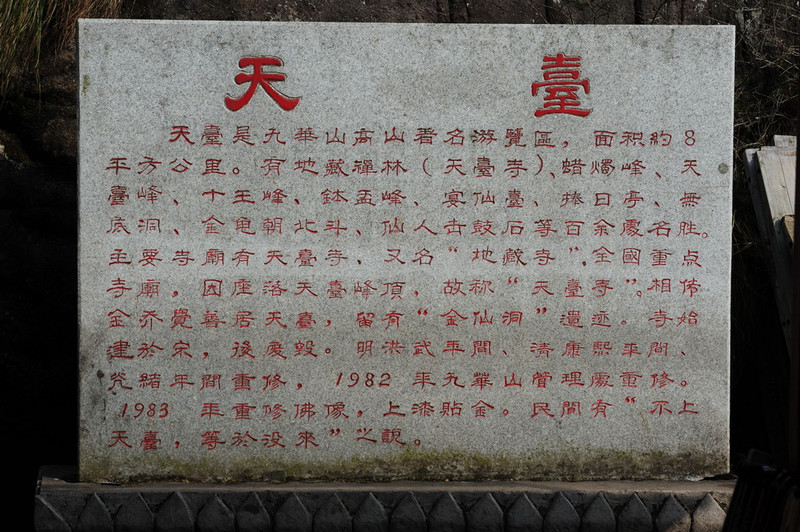 天臺
天臺是九華山高山著名游覽區，面积約8
平方公里。有地藏禪林（天臺寺）、蜡燭峰、天
臺峰、十王峰、鉢盂峰、宴仙臺、捧日亭、無
底洞、金龟朝北斗、仙人击鼓石等百余處名胜。
主要寺廟有天臺寺、又名“地藏寺”。全國重点
寺廟，因座落天臺峰頂，故称“天臺寺”。相傳
金乔覺善居天臺，留有“金仙洞”遺迹。寺始
建於宋，後废毁。明洪武年間、清康熙年間、
光緒年間重修，1982年九華山管理處重修。
1983年重修佛像，上漆貼金。民間有“不上
天臺，等於没來”之說。